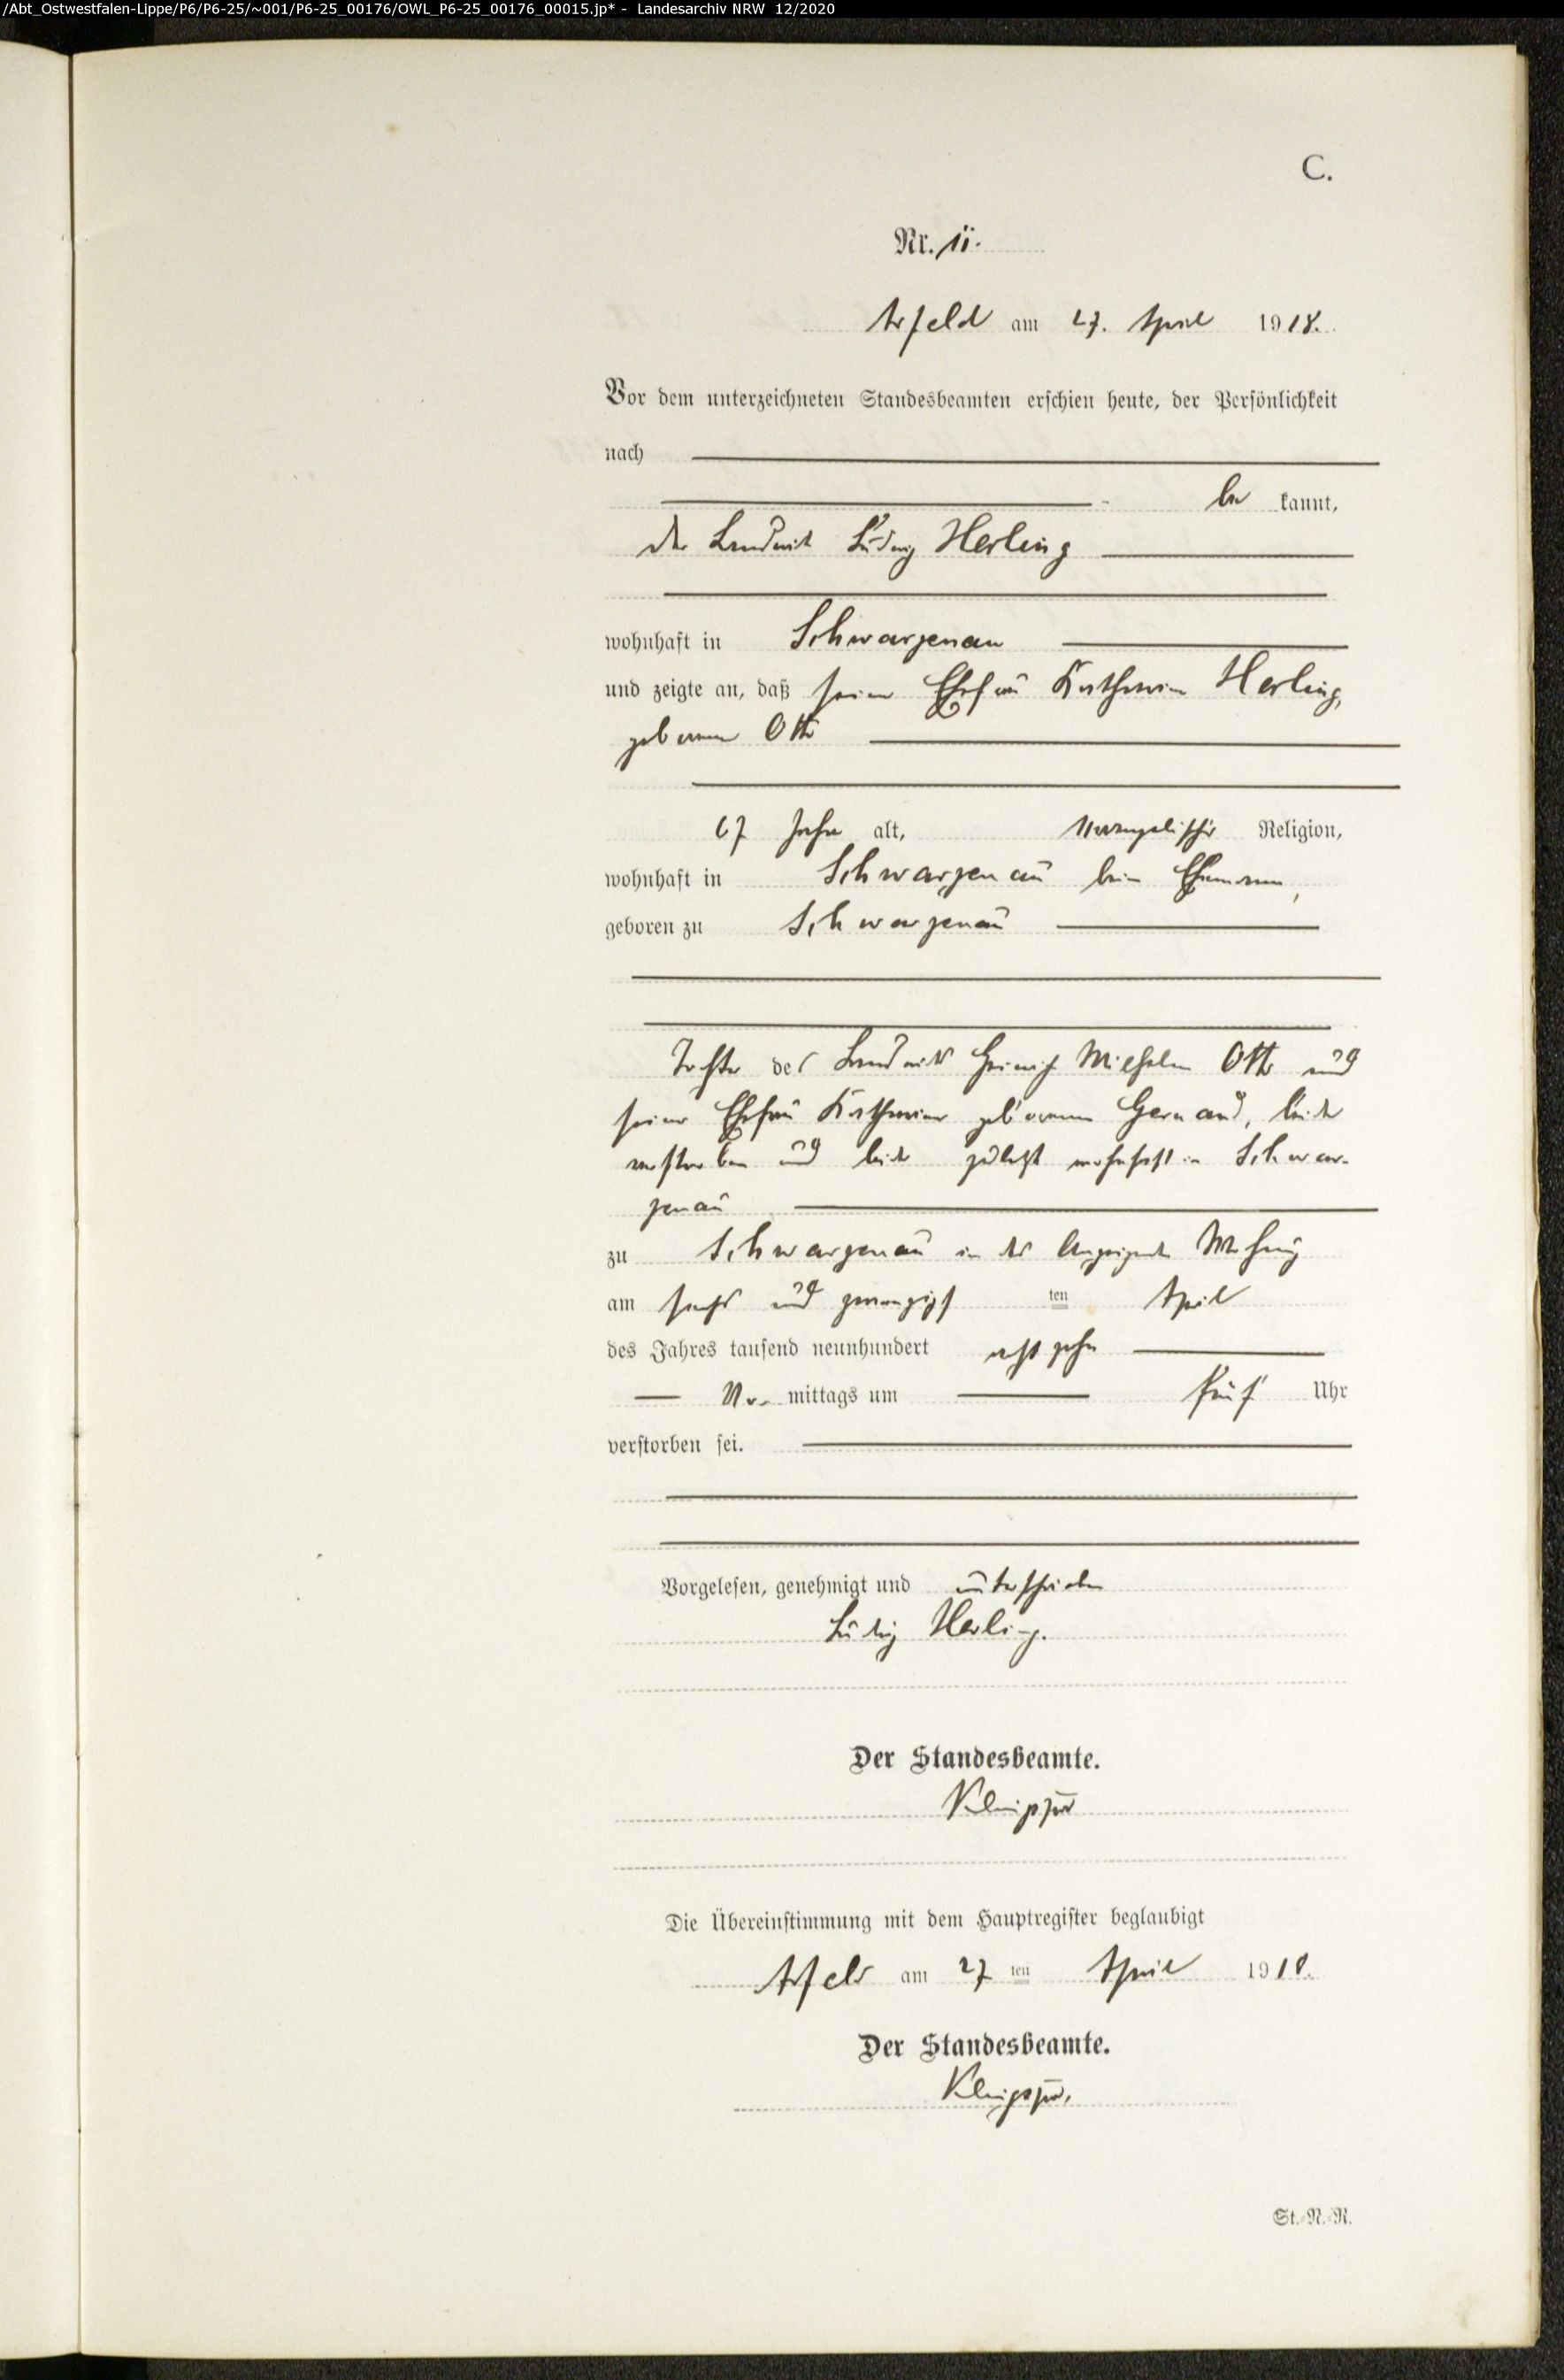 /Abt_Ostwestfalen-Lippe/P6/P6-25/~001/P6-25_00176/OWL_P6-25_00176_00015.jp* - Landesarchiv NRW 12/2020
C.
Nr. 11.
Arfeld am 27. April 1918.
Vor dem unterzeichneten Standesbeamten erschien heute, der Persönlichkeit
nach
be kannt,
der Landwirt Ludwig Herling
wohnhaft in Schwarzenau
und zeigte an, daß seine Ehefrau Katharine Herling,
geborene Otto
67 Jahre alt, evangelischer Religion,
wohnhaft in Schwarzenau beim Ehemann,
geboren zu Schwarzenau
Tochter des Landwirts Heinrich Wilhelm Otto und
seiner Ehefrau Katharine geborenen Gernand, beide
verstorben und beide zuletzt wohnhaft in Schwar-
zenau
zu Schwarzenau in der Wohnung
am sechs und zwanzigsten April
des Jahres tausend neunhundert achtzehn
mittags um fünf Uhr
verstorben sei.
Vorgelesen, genehmigt und unterschrieben
Ludwig Herling.
Der Standesbeamte.
Die Übereinstimmung mit dem Hauptregister beglaubigt
Arfeld am 27 ten April 1918.
Der Standesbeamte.
St.-N.-R.